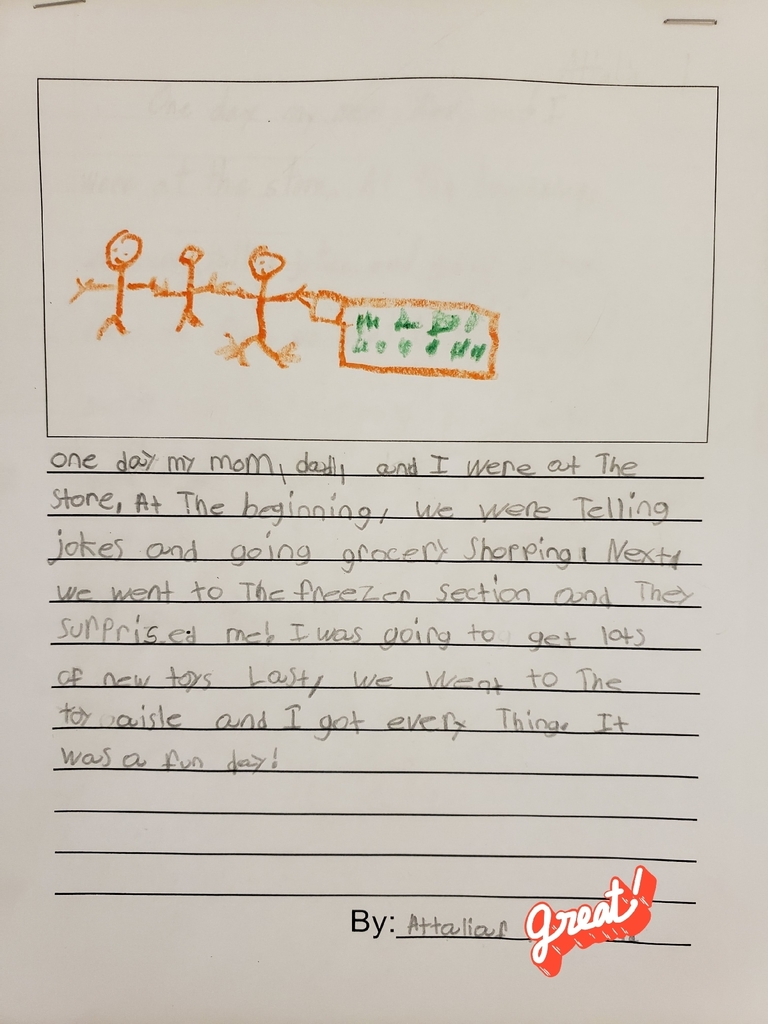 one day my mom, dad, and I were at The
Store, At The beginning, we were Telling
jokes and going grocery Shopping. Next,
we went to The freezer section and They
surprised me! I was going to get lots
of new toys Last, we went to The
toy aisle and I got every Thing. It
was a fun day!
By: Attalia
great!